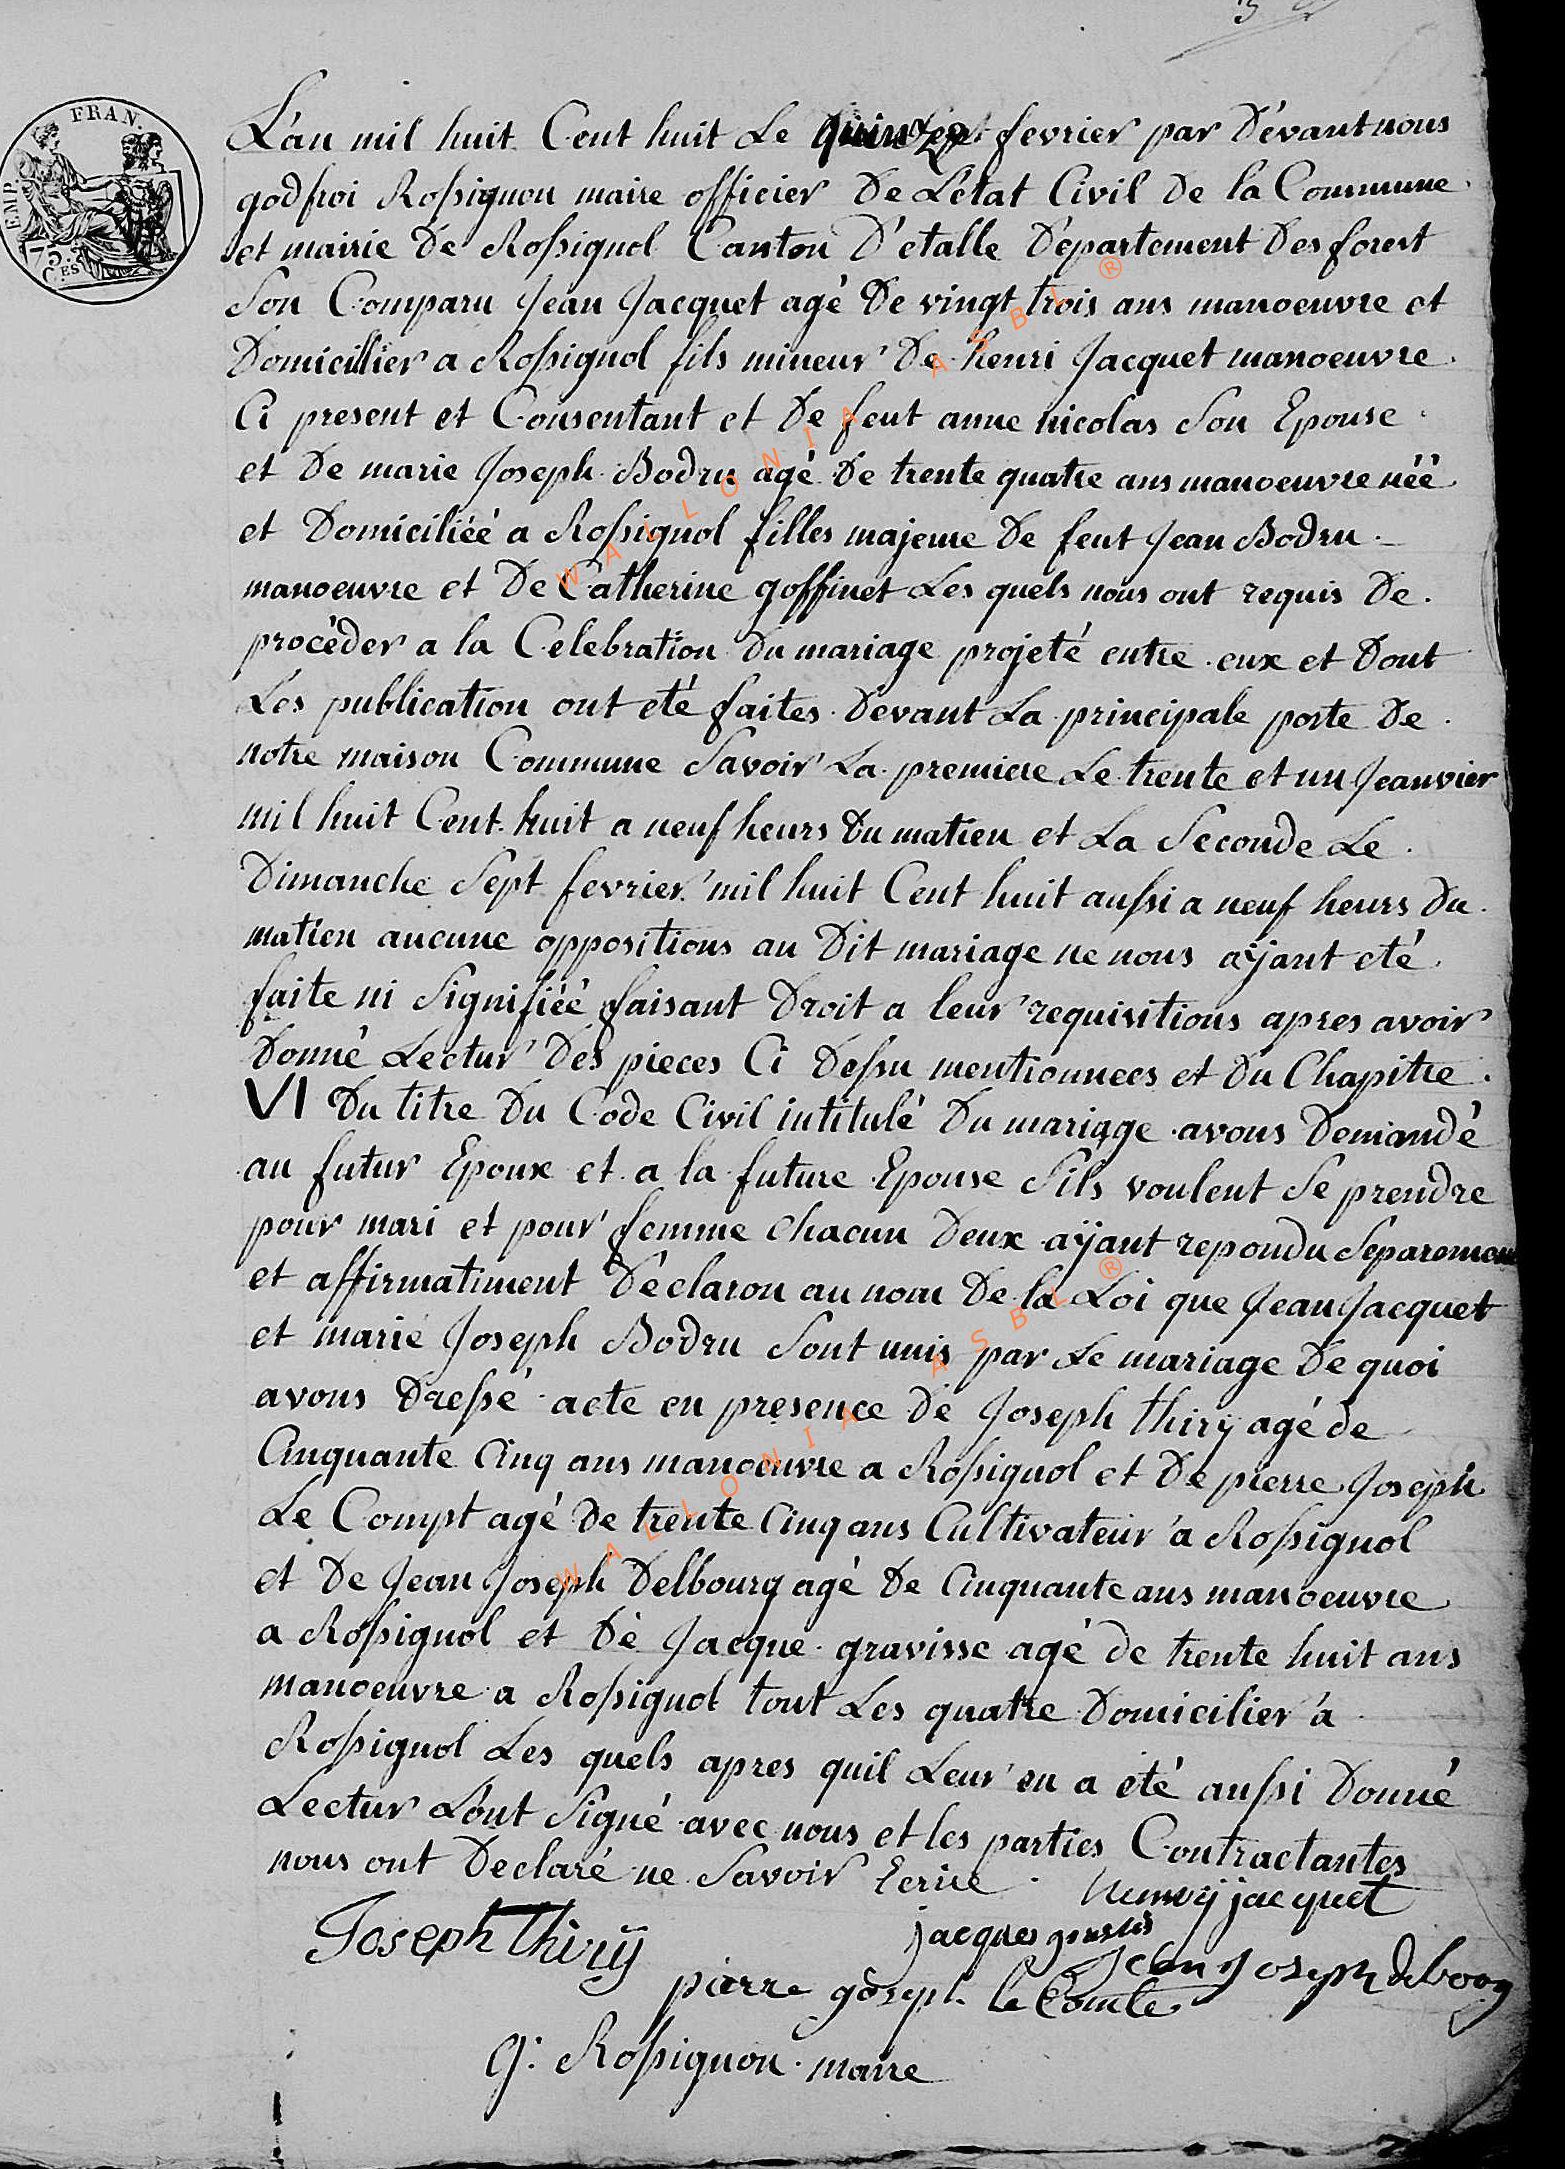 3
FRAN.
EMP.
75
CES
L'an mil huit Cent huit Le quinze fevrier par Dévant nous
godfroi Rossignon maire officier De Létat Civil De la Commune
et mairie De Rossignol Canton D'etalle Département Des forest
Son Comparu Jean Jacquet agé De vingt trois ans manoeuvre et
Domicillier a Rossignol fils mineur De henri Jacquet manoeuvre
Ci present et Consentant et De feut anne nicolas Son Epouse
et De marie Joseph Bodru agé De trente quatre ans manoeuvre néé
et Domiciliéé a Rossignol filles majeure De feut Jean Bodru
manoeuvre et De Catherine goffinet Les quels nous ont requis De
procéder a la Celebration Du mariage projeté entre eux et Dont
Les publication ont eté faites Devant La principale porte De
notre maison Commune Savoir La premiere Le trente et un Jeanvier
mil huit Cent huit a neuf heurs Du matien et La Seconde Le
Dimanche Sept fevrier mil huit Cent huit aussi a neuf heurs Du
matien aucune oppositions au Dit mariage ne nous aÿant eté
faite ni Signifiéé faisant Droit a leur requisitions apres avoir
Donné Lectur Des pieces Ci Dessu mentionnees et Du Chapitre
VI Du titre Du Code Civil intitulé Du mariage avons Demandé
au futur Epoux et a la future Epouse Sils voulent Se prendre
pour mari et pour femme Chacun Deux aÿant repondu Separemen
et affirmatiment Déclaron au nom De la Loi que Jean Jacquet
et marie Joseph Bodru Sont unis par Le mariage De quoi
avons Dressé acte en presence De Joseph thirÿ agé de
Cinquante Cinq ans manoeuvre a Rossignol et De pierre Joseph
Le Compt agé De trente Cinq ans Cultivateur a Rossignol
et De Jean Joseph Delbourg agé De Cinquante ans manoeuvre
a Rossignol et Dé Jacque gravisse agé de trente huit ans
manoeuvre a Rossignol tout Les quatre Domicilier a
Rossignol Les quels apres quil Leur en a eté aussi Donné
Lectur Lont Signé avec nous et les parties Contractantes
nous ont Declaré ne Savoir Ecrire
jacquet
jacques
Joseph thirÿ
Jean Joseph
pierre joseph le Comte
G. Rossignon maire
WALLONIA ASBL ®
WALLONIA ASBL ®